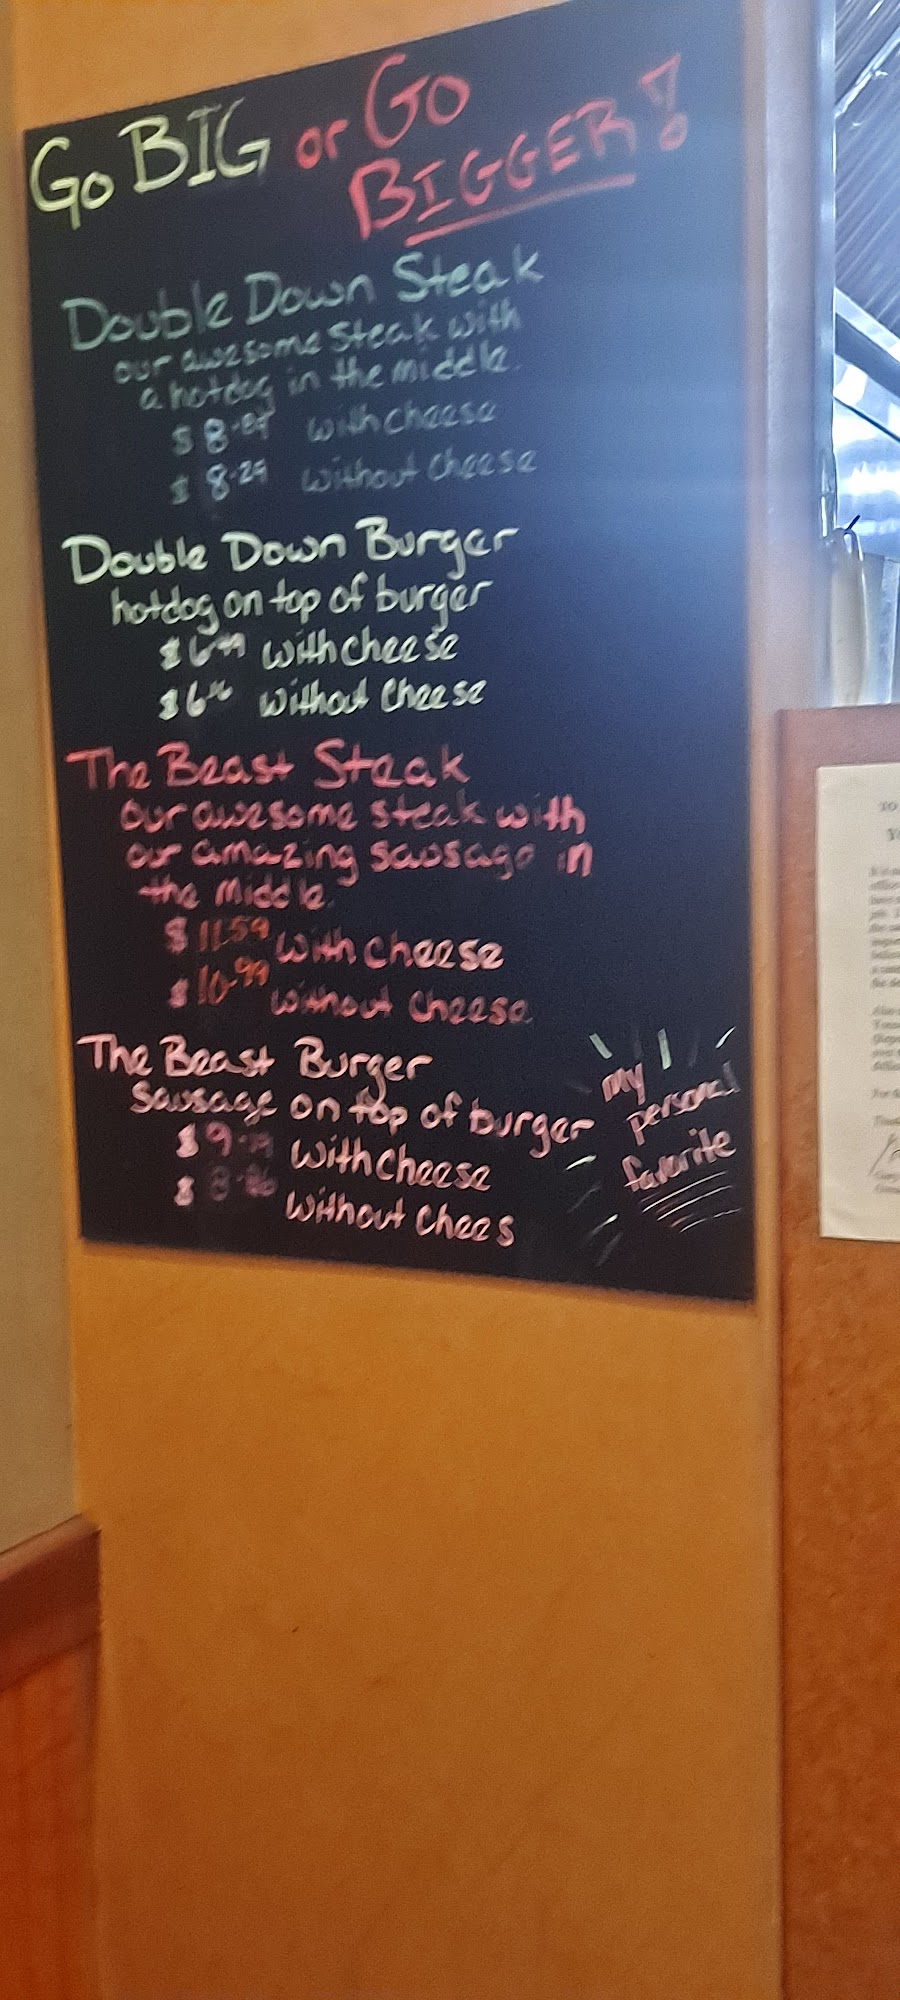 Go BIG or Go
BIGGER!
Double Down Steak
our awesome steak with
a hotdog in the middle.
with cheese
$ 8.29 without cheese
Double Down Burger
hotdog on top of burger
with cheese
without cheese
The Beast Steak
our awesome steak with
our amazing sausage in
the middle.
$ 11.59 with cheese
$ 10.99 without cheese
The Beast Burger
Sausage on top of burger
with cheese
without chees
my
personal
favorite